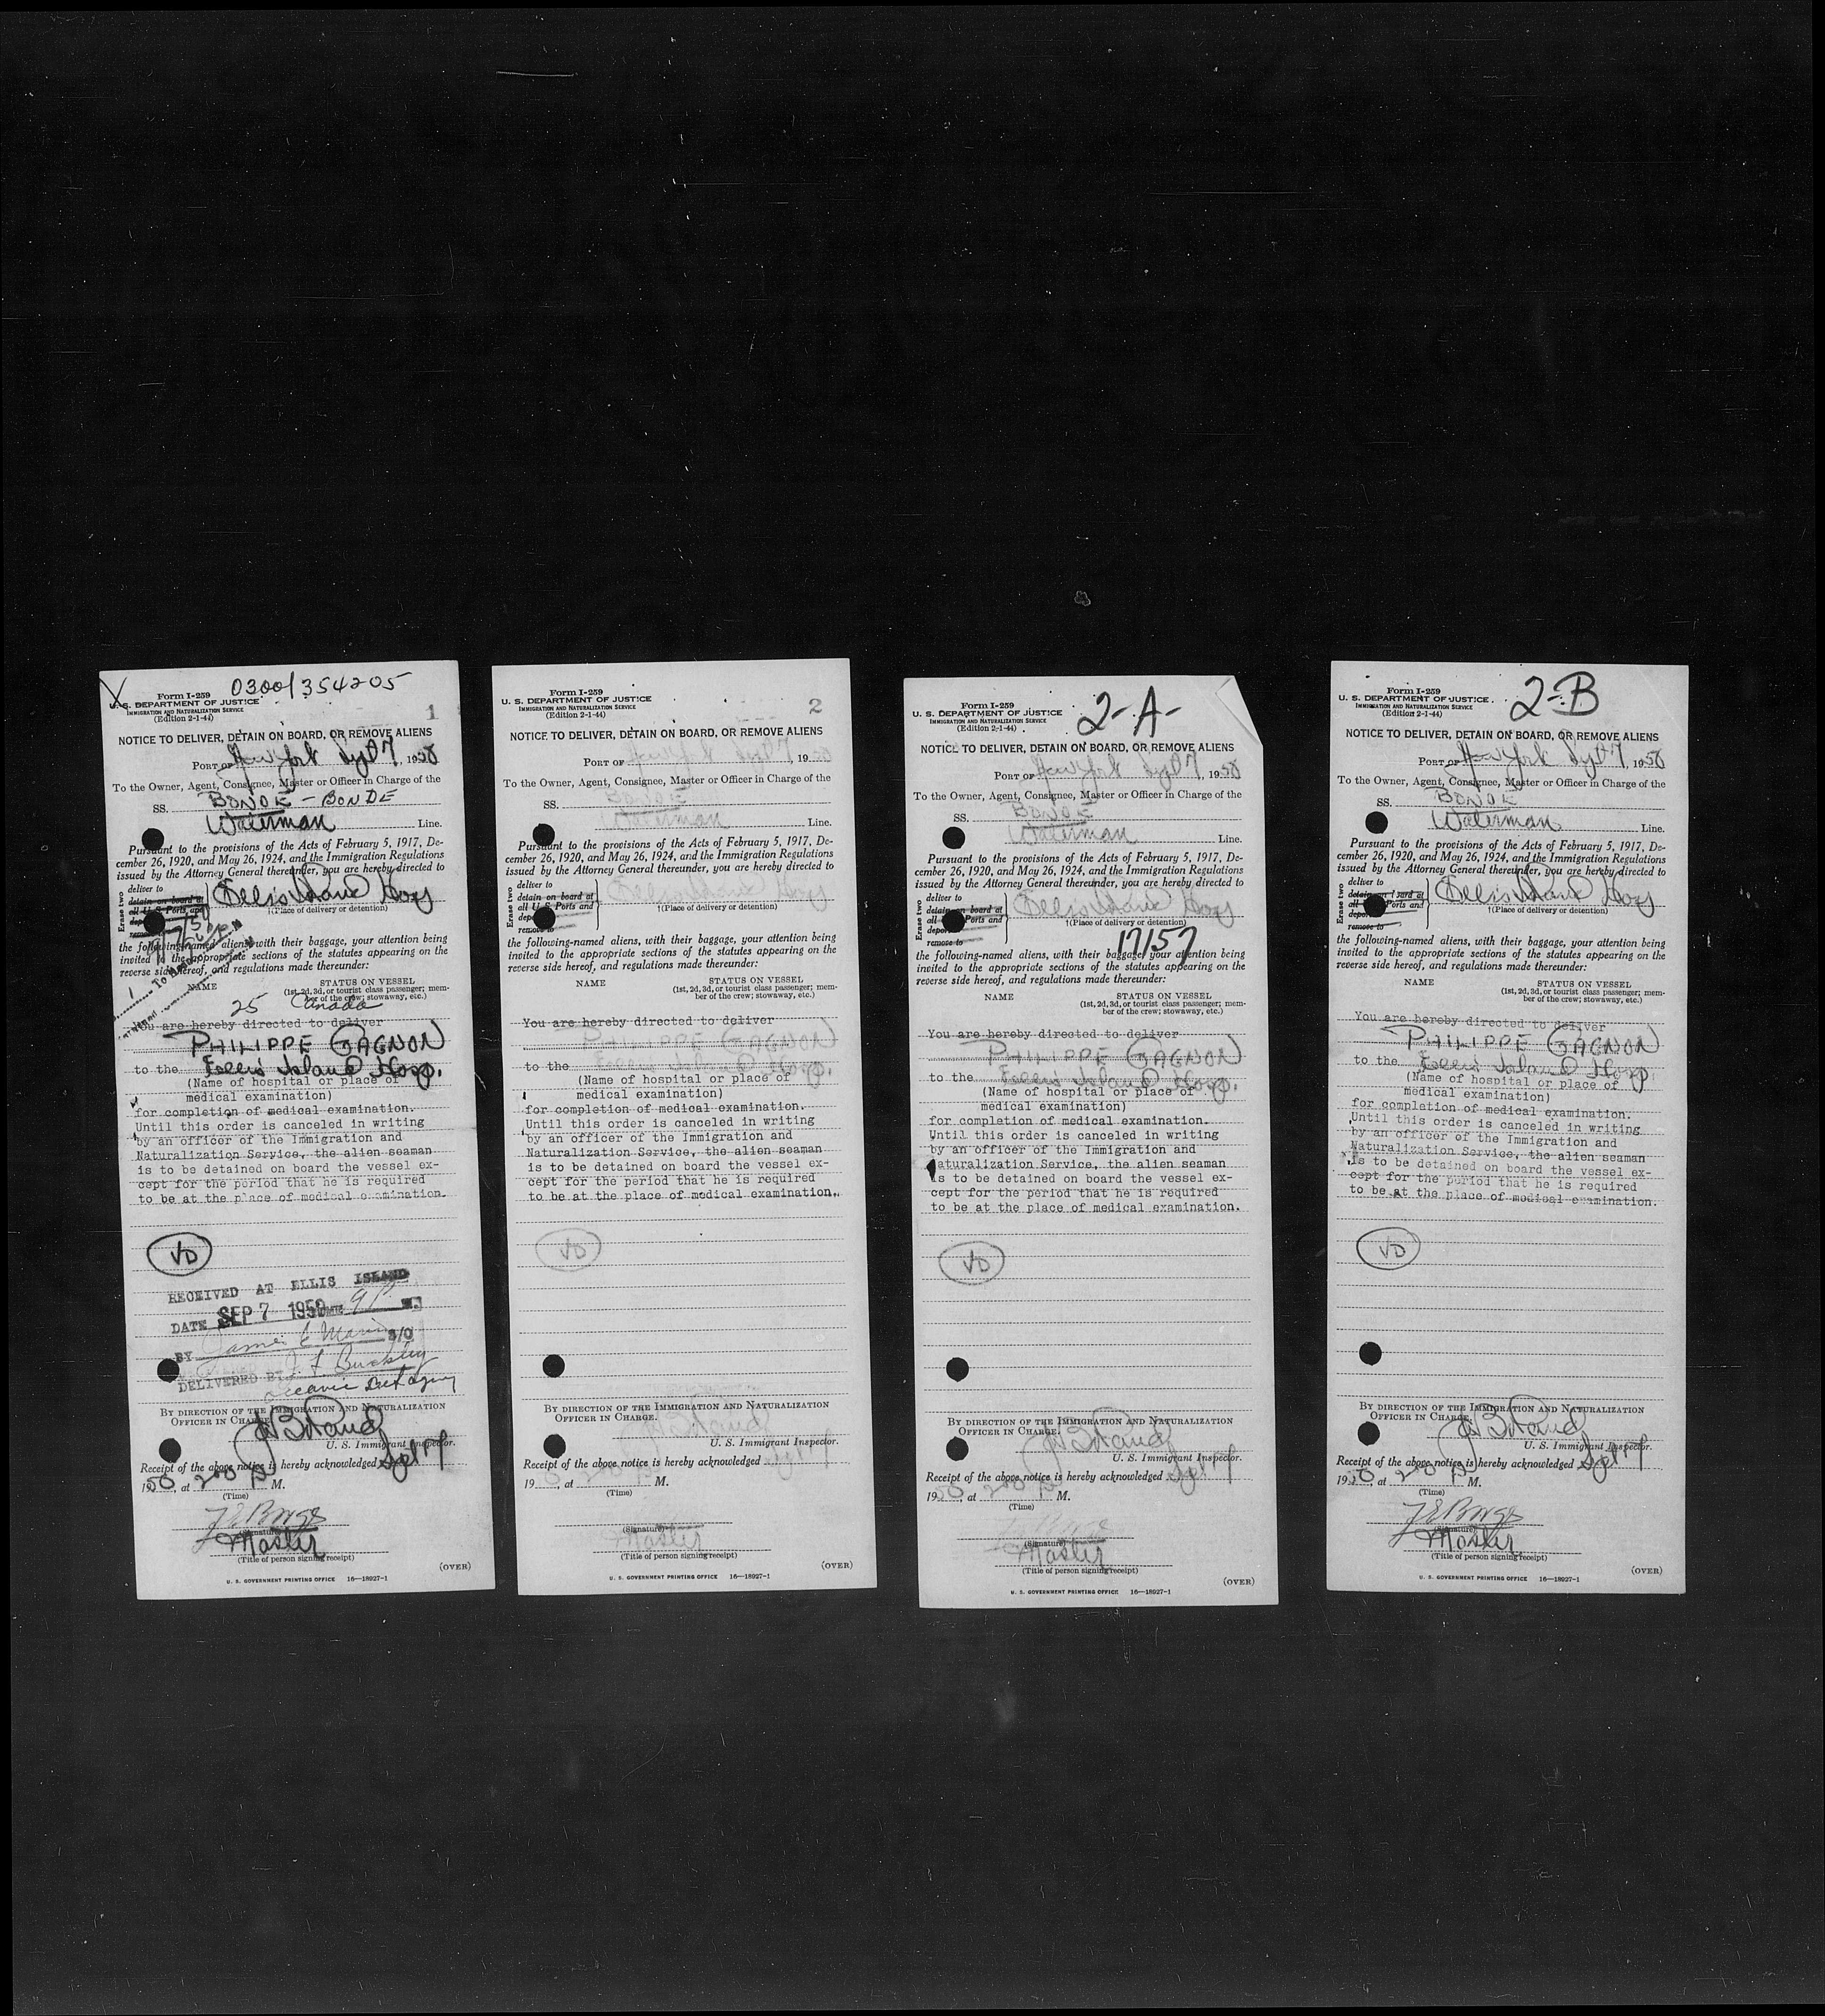 0300/354205
Form I-259
U. S. DEPARTMENT OF JUSTICE
IMMIGRATION AND NATURALIZATION SERVICE
(Edition 2-1-44)
1
NOTICE TO DELIVER, DETAIN ON BOARD, OR REMOVE ALIENS
PORT OF New York Sept 7, 1950
To the Owner, Agent, Consignee, Master or Officer in Charge of the
SS. BONDE - BONDE
Waterman Line.
Pursuant to the provisions of the Acts of February 5, 1917, De-
cember 26, 1920, and May 26, 1924, and the Immigration Regulations
issued by the Attorney General thereunder, you are hereby directed to
Erase two
deliver to
detain on board at
all U. S. Ports and
remove to
Ellis Island Hosp
†(Place of delivery or detention)
the following-named aliens, with their baggage, your attention being
invited to the appropriate sections of the statutes appearing on the
reverse side hereof, and regulations made thereunder:
NAME
STATUS ON VESSEL
(1st, 2d, 3d, or tourist class passenger; mem-
ber of the crew; stowaway, etc.)
25 Canada
You are hereby directed to deliver
PHILIPPE GAGNON
to the Ellis Island Hosp.
(Name of hospital or place of
medical examination)
for completion of medical examination.
Until this order is canceled in writing
by an officer of the Immigration and
Naturalization Service, the alien seaman
is to be detained on board the vessel ex-
cept for the period that he is required
to be at the place of medical examination.
VD
RECEIVED AT ELLIS ISLAND
DATE SEP 7 1950 TIME 9 P M.
BY James C S/O
DELIVERED BY J F Buckley
Oceanic Det Agency
BY DIRECTION OF THE IMMIGRATION AND NATURALIZATION
OFFICER IN CHARGE.
U. S. Immigrant Inspector.
Receipt of the above notice is hereby acknowledged Sept 7
1950, at 200 P M.
(Time)
(Signature)
Master
(Title of person signing receipt)
(OVER)
U. S. GOVERNMENT PRINTING OFFICE 16—18927-1
Form I-259
U. S. DEPARTMENT OF JUSTICE
IMMIGRATION AND NATURALIZATION SERVICE
(Edition 2-1-44)
2
NOTICE TO DELIVER, DETAIN ON BOARD, OR REMOVE ALIENS
PORT OF New York Sept 7, 1950
To the Owner, Agent, Consignee, Master or Officer in Charge of the
SS. BONDE
Waterman Line.
Pursuant to the provisions of the Acts of February 5, 1917, De-
cember 26, 1920, and May 26, 1924, and the Immigration Regulations
issued by the Attorney General thereunder, you are hereby directed to
Erase two
deliver to
detain on board at
all U. S. Ports and
remove to
Ellis Island Hosp
†(Place of delivery or detention)
the following-named aliens, with their baggage, your attention being
invited to the appropriate sections of the statutes appearing on the
reverse side hereof, and regulations made thereunder:
NAME
STATUS ON VESSEL
(1st, 2d, 3d, or tourist class passenger; mem-
ber of the crew; stowaway, etc.)
You are hereby directed to deliver
PHILIPPE GAGNON
to the Ellis Island Hosp.
(Name of hospital or place of
medical examination)
for completion of medical examination.
Until this order is canceled in writing
by an officer of the Immigration and
Naturalization Service, the alien seaman
is to be detained on board the vessel ex-
cept for the period that he is required
to be at the place of medical examination.
VD
BY DIRECTION OF THE IMMIGRATION AND NATURALIZATION
OFFICER IN CHARGE.
U. S. Immigrant Inspector.
Receipt of the above notice is hereby acknowledged Sept 7
19 , at M.
(Time)
(Signature)
Master
(Title of person signing receipt)
(OVER)
U. S. GOVERNMENT PRINTING OFFICE 16—18927-1
2-A-
Form I-259
U. S. DEPARTMENT OF JUSTICE
IMMIGRATION AND NATURALIZATION SERVICE
(Edition 2-1-44)
NOTICE TO DELIVER, DETAIN ON BOARD, OR REMOVE ALIENS
PORT OF New York Sept 7, 1950
To the Owner, Agent, Consignee, Master or Officer in Charge of the
SS. BONDE
Waterman Line.
Pursuant to the provisions of the Acts of February 5, 1917, De-
cember 26, 1920, and May 26, 1924, and the Immigration Regulations
issued by the Attorney General thereunder, you are hereby directed to
Erase two
deliver to
detain on board at
all Ports and
remove to
Ellis Island Hosp
†(Place of delivery or detention)
17157
the following-named aliens, with their baggage, your attention being
invited to the appropriate sections of the statutes appearing on the
reverse side hereof, and regulations made thereunder:
NAME
STATUS ON VESSEL
(1st, 2d, 3d, or tourist class passenger; mem-
ber of the crew; stowaway, etc.)
You are hereby directed to deliver
PHILIPPE GAGNON
to the Ellis Island Hosp.
(Name of hospital or place of
medical examination)
for completion of medical examination.
Until this order is canceled in writing
by an officer of the Immigration and
Naturalization Service, the alien seaman
is to be detained on board the vessel ex-
cept for the period that he is required
to be at the place of medical examination.
VD
BY DIRECTION OF THE IMMIGRATION AND NATURALIZATION
OFFICER IN CHARGE.
U. S. Immigrant Inspector.
Receipt of the above notice is hereby acknowledged Sept 7
1950, at 200 P M.
(Time)
(Signature)
Master
(Title of person signing receipt)
(OVER)
U. S. GOVERNMENT PRINTING OFFICE 16—18927-1
2-B
Form I-259
U. S. DEPARTMENT OF JUSTICE
IMMIGRATION AND NATURALIZATION SERVICE
(Edition 2-1-44)
NOTICE TO DELIVER, DETAIN ON BOARD, OR REMOVE ALIENS
PORT OF New York Sept 7, 1950
To the Owner, Agent, Consignee, Master or Officer in Charge of the
SS. BONDE
Waterman Line.
Pursuant to the provisions of the Acts of February 5, 1917, De-
cember 26, 1920, and May 26, 1924, and the Immigration Regulations
issued by the Attorney General thereunder, you are hereby directed to
Erase two
deliver to
detain on board at
all Ports and
remove to
Ellis Island Hosp
†(Place of delivery or detention)
the following-named aliens, with their baggage, your attention being
invited to the appropriate sections of the statutes appearing on the
reverse side hereof, and regulations made thereunder:
NAME
STATUS ON VESSEL
(1st, 2d, 3d, or tourist class passenger; mem-
ber of the crew; stowaway, etc.)
You are hereby directed to deliver
PHILIPPE GAGNON
to the Ellis Island Hosp
(Name of hospital or place of
medical examination)
for completion of medical examination.
Until this order is canceled in writing
by an officer of the Immigration and
Naturalization Service, the alien seaman
is to be detained on board the vessel ex-
cept for the period that he is required
to be at the place of medical examination.
VD
BY DIRECTION OF THE IMMIGRATION AND NATURALIZATION
OFFICER IN CHARGE.
U. S. Immigrant Inspector.
Receipt of the above notice is hereby acknowledged Sept 7
1950, at 200 P M.
(Time)
(Signature)
Master
(Title of person signing receipt)
(OVER)
U. S. GOVERNMENT PRINTING OFFICE 16—18927-1